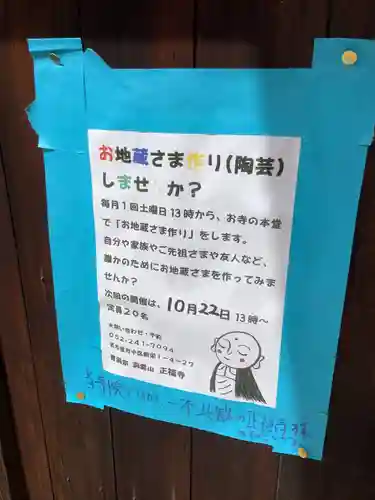 お地蔵さま作り(陶芸)
しませ か？
毎月1回土曜日13時から、お寺の本堂
で「お地蔵さま作り」をします。
自分や家族やご先祖さまや友人など、
誰かのためにお地蔵さまを作ってみま
せんか？
次回の開催は、10月22日 13時～
定員20名
お問い合わせ・予約
052-241-7094
1-4-27
曹洞宗 正福寺